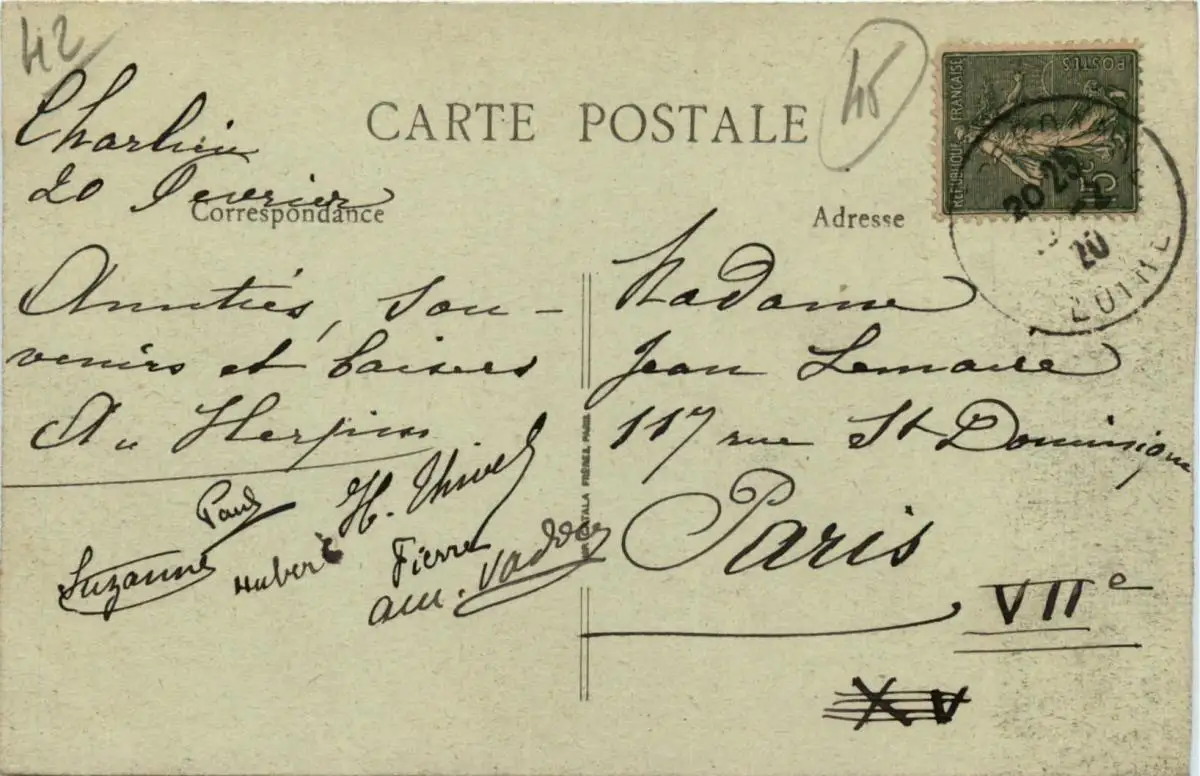 42
45
CARTE POSTALE
RÉPUBLIQUE FRANÇAISE
POSTES
15c
20 25
20
LOIRE
Charlieu
20 Fevrier
Correspondance
Adresse
Amitiés, sou-
venirs et baisers
A. Herpin
Paul
H. Thivel
Suzanne
Hubert
Pierre
Madame
Jean Lemaire
117 rue St Dominique
Paris
VIIe
XV